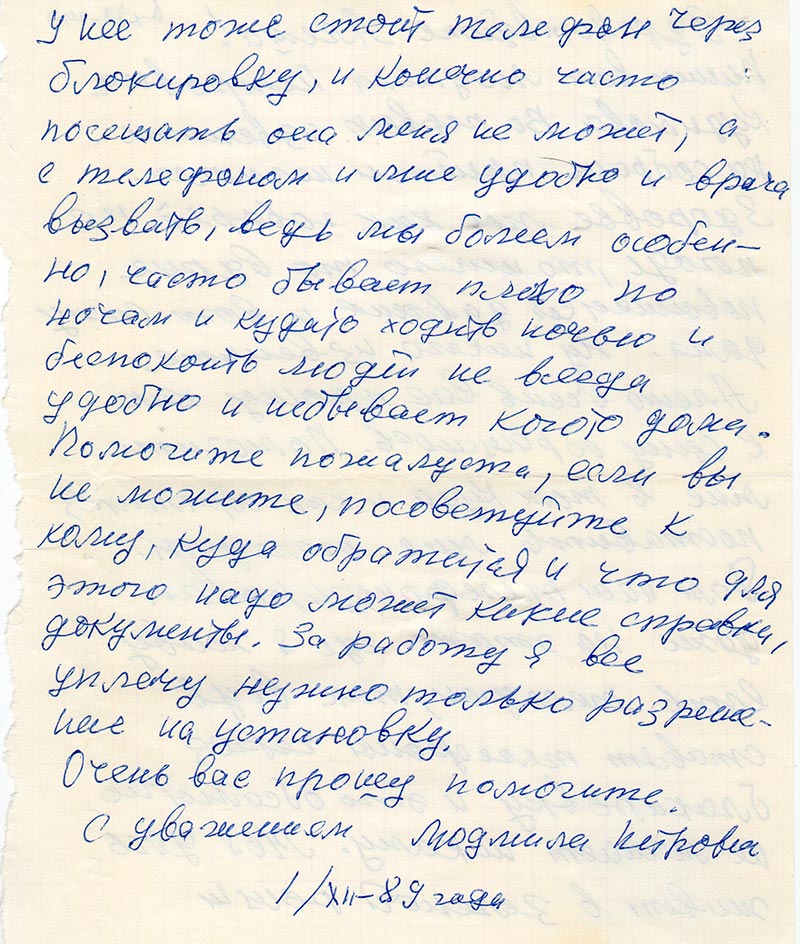 У нее тоже стоит телефон через
блокировку, и конечно часто
посещать она меня не может, а
с телефоном и мне удобно и врача
вызвать, ведь мы болеем особен–
но, часто бывает плохо по
ночам и кудато ходить ночью и
беспокоить людей не всегда
удобно и небывает когото дома.
Помогите пожалуста, если вы
не можите, посоветуйте к
кому, куда обратится и что для
этого надо может какие справки,
документы. За работу я все
уплачу нужно только разреше-
ние на установку.
Очень вас прошу помогите.
С уважением Людмила Петровна
1/XII–89 года